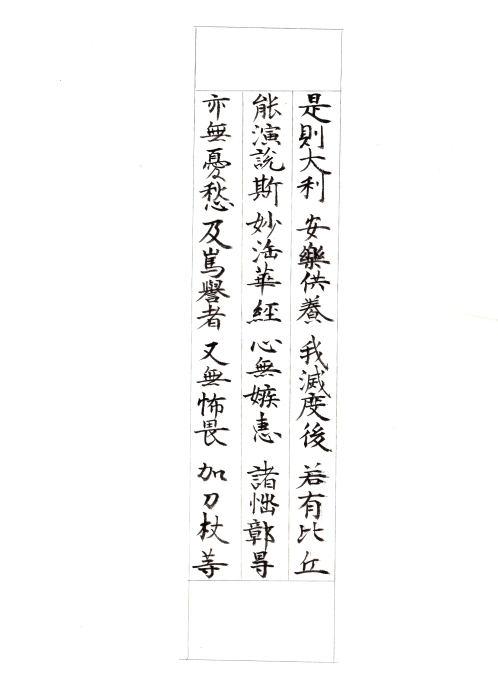 是則大利 安樂供養 我滅度後 若有比丘
能演說斯 妙法華經 心無嫉恚 諸惱鄣㝵
亦無憂愁 及罵詈者 又無怖畏 加刀杖等